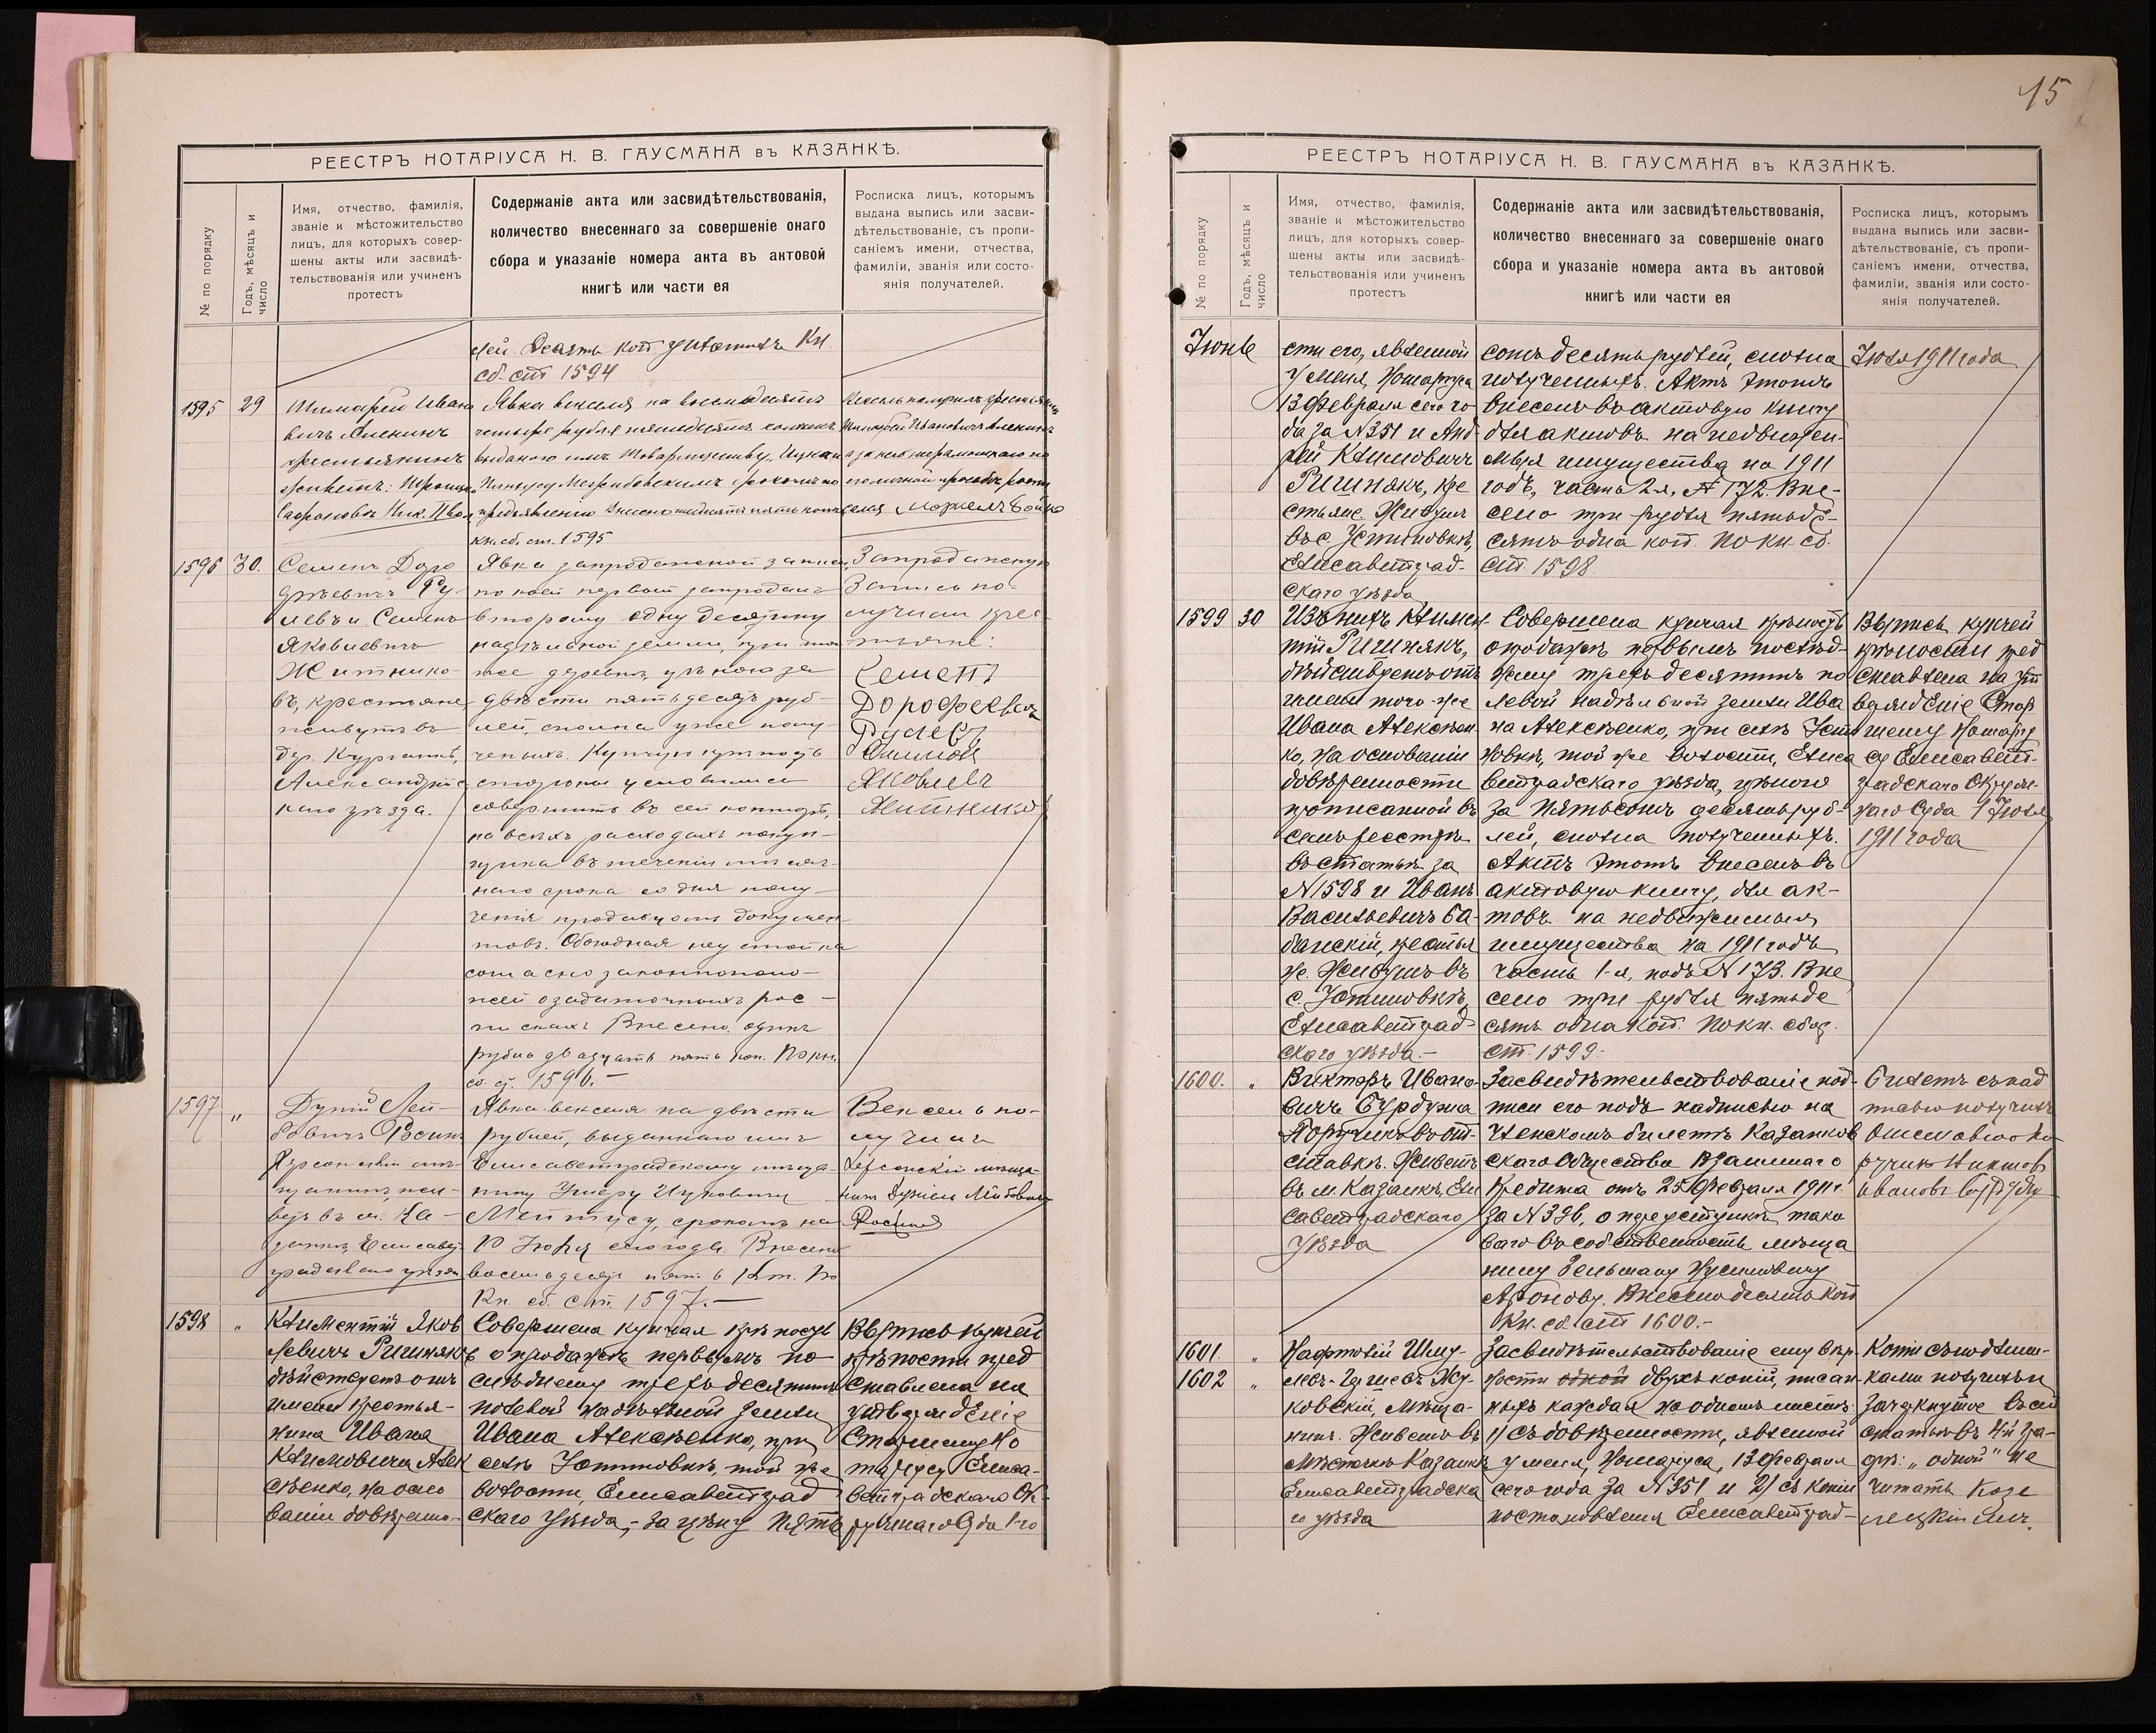 15
РЕЕСТРЪ НОТАРІУСА Н. В. ГАУСМАНА въ КАЗАНКѢ.
№ по порядку
Годъ, мѣсяцъ и
число
Имя, отчество, фамилія,
званіе и мѣстожительство
лицъ, для которыхъ совер-
шены акты или засвидѣ-
тельствованія или учиненъ
протестъ
Содержаніе акта или засвидѣтельствованія,
количество внесеннаго за совершеніе онаго
сбора и указаніе номера акта въ актовой
книгѣ или части ея
Росписка лицъ, которымъ
выдана выпись или засви-
дѣтельствованіе, съ пропи-
саніемъ имени, отчества,
фамиліи, званія или состо-
янія получателей.
лей. Десять коп
Кн
сб. ст 1594
1595
29
Ивано
вичъ Аленинъ
крестьянинъ
Явка векселя на восемьдесятъ
четыре рубля
выданого имъ Товариществу
кн. сб. ст. 1595
1596
30.
Семенъ Доро
феевичъ Ру-
левъ и Семенъ
Яковлевичъ
Житнико-
въ, крестьяне
живутъ въ
дер. Курганкѣ,
Александрійс
каго уѣзда.
Явка запродажной записи,
по коей первый запродалъ
второму одну десятину
надѣльной земли, при той
же деревнѣ, цѣною за
двѣсти пятьдесятъ руб-
лей, сполна уже полу-
ченныхъ. Купчую крѣпость
стороны условились
совершить въ сей конторѣ,
на всѣхъ расходахъ покуп-
щика въ теченіи мѣсяч-
наго срока со дня полу-
ченія продавцомъ докумен
товъ. Обоюдная неустойка
согласно законоположе-
ній о задаточныхъ рос-
пискахъ. Внесено одинъ
рубль двадцать пять коп. По кн.
сб. ст. 1596.-
Запродажную
Запись по-
лучили крес
тьяне:
Семенъ
Дорофеевъ
Рулевъ
Симонъ
Яковлевъ
Житнико
1597
"
Дуній Лей-
бовичъ Росинъ
Херсонскій мѣ-
щанинъ, жи-
ветъ въ м. Ка-
занкѣ, Елисавет-
градскаго уѣзда
Явка векселя на двѣсти
рублей, выданнаго имъ
Елисаветградскому мѣща-
нину Ушеру Ицковичу
срокомъ на
10 Іюля сего года. Внесено
восемьдесятъ пять коп. По
Кн. сб. ст. 1597.-
Вексель по-
лучилъ
Херсонскій мѣща-
нинъ Дуній Лейбовичъ
Росинъ
1598
"
Климентій Яков
левичъ Ришнякъ
дѣйствуетъ отъ
имени крестья-
нина Ивана
Климовича Алек
сѣенко, на осно
ваніи довѣренно-
Совершена купчая крѣпость
о продажѣ первымъ по
слѣднему трехъ десятинъ
полевой надѣльной земли
Ивана Алексѣенко, при
селѣ Устиновкѣ, той же
волости, Елисаветград
скаго уѣзда,- за цѣну пять
Выпись купчей
крѣпости пред
ставлена на
утвержденіе
Старшему Но
таріусу Елиса-
ветградскаго Ок-
ружнаго Суда 1-го
РЕЕСТРЪ НОТАРІУСА Н. В. ГАУСМАНА въ КАЗАНКѢ.
№ по порядку
Годъ, мѣсяцъ и
число
Имя, отчество, фамилія,
званіе и мѣстожительство
лицъ, для которыхъ совер-
шены акты или засвидѣ-
тельствованія или учиненъ
протестъ
Содержаніе акта или засвидѣтельствованія,
количество внесеннаго за совершеніе онаго
сбора и указаніе номера акта въ актовой
книгѣ или части ея
Росписка лицъ, которымъ
выдана выпись или засви-
дѣтельствованіе, съ пропи-
саніемъ имени, отчества,
фамиліи, званія или состо-
янія получателей.
Іюнь
сти его, явленной
у меня, Нотаріуса
13 Февраля сего го
да за № 351 и Анд-
рей Климовичъ
Ришнякъ, кре
стьяне. Живутъ
въ с. Устиновкѣ,
Елисаветград-
скаго уѣзда
сотъ десять рублей, сполна
полученныхъ. Актъ этотъ
внесенъ въ актовую книгу
для актовъ на недвижи-
мыя имущества на 1911
годъ, часть 2я, № 172. Вне-
сено три рубля пятьде-
сятъ одна коп. По кн. сб.
ст. 1598.
Іюля 1911 года
1599
30
Изъ нихъ Климен
тій Ришнякъ,
дѣйствуетъ отъ
имени того-же
Ивана Алексѣен
ко, на основаніи
довѣренности
прописанной въ
семъ реестрѣ
въ статьѣ за
№ 1598 и Иванъ
Васильевичъ Ба-
банскій, крестья
не. Живутъ въ
с. Устиновкѣ,
Елисаветград-
скаго уѣзда.-
Совершена купчая крѣпость
о продажѣ первымъ послѣд-
нему трехъ десятинъ по
левой надѣльной земли Ива
на Алексѣенко, при селѣ Усти
новкѣ, той же волости, Елиса
ветградскаго уѣзда, цѣною
за пятьсотъ десять руб-
лей, сполна полученныхъ.
Актъ этотъ внесенъ въ
актовую книгу, для ак-
товъ на недвижимыя
имущества на 1911 годъ
часть 1-я, подъ № 173. Вне
сено три рубля пятьде
сятъ одна коп. По кн. сбор.
ст. 1599.-
Выпись купчей
крѣпости пред
ставлена на ут
вержденіе Стар
шему Нотаріу
су Елисавет-
градскаго Окруж-
наго Суда 1 Іюля
1911 года
1600.
"
Викторъ Ивано-
вичъ Бурдужа
Поручикъ въ от-
ставкѣ. Живетъ
въ м. Казанкѣ, Ели
саветградскаго
уѣзда
Засвидѣтельствованіе под-
писи его подъ надписью на
членскомъ билетѣ Казанков
скаго Общества Взаимнаго
Кредита отъ 25 Февраля 1911 г.
за № 396, о переуступкѣ тако
ваго въ собственность мѣща
нину Зельману Нусимовичу
Аронову. Внесено десять коп
Кн. сб. ст 1600.-
Билетъ съ над
писью получилъ
Отставной По
ручикъ Викторъ
Ивановъ
1601.
"
1602
"
Нафтолій Шму-
Жу-
ковскій, мѣща-
нинъ. Живетъ въ
мѣстечкѣ Казанкѣ
Елисаветградска
го уѣзда
Засвидѣтельствованіе ему вѣр-
ности одной двухъ копій, писан
ныхъ каждая на одномъ листѣ:
1) съ довѣренности, явленной
у меня, Нотаріуса, 13 Февраля
сего года за № 351 и 2) съ копіи
постановленія Елисаветград-
Копіи съ подлин-
никами получилъ и
зачеркнутое въ сей
статьѣ въ 4й гра-
фѣ: „одной" не
читать